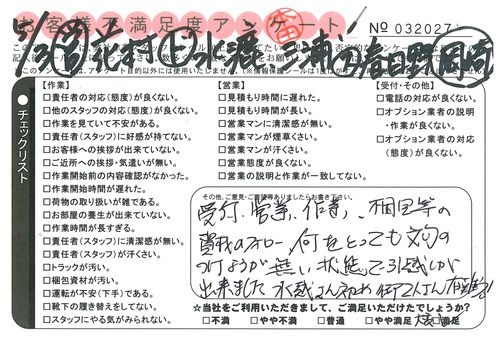 お客様不満足度アンケート
No 032027
チェックリスト
【作業】
□責任者の対応(態度)が良くない。
□他のスタッフの対応(態度)が良くない。
□作業を見ていて不安がある。
□責任者(スタッフ)に好感が持てない。
□お客様への挨拶が出来ていない。
□ご近所への挨拶・気遣いが無い。
□作業開始前の内容確認がなかった。
□作業開始時間が遅れた。
□荷物の取り扱いが雑である。
□お部屋の養生が出来ていない。
□作業時間が長すぎる。
□責任者(スタッフ)に清潔感が無い。
□責任者(スタッフ)が汗くさい。
□トラックが汚い。
□梱包資材が汚い。
□運転が不安(下手)である。
□靴下の履き替えをしてない。
□スタッフにやる気がみられない。
【営業】
□見積もり時間に遅れた。
□見積もり時間が長い。
□営業マンに清潔感が無い。
□営業マンが煙草くさい。
□営業マンが汗くさい。
□営業態度が良くない。
□営業の説明と作業が一致してない。
【受付・その他】
□電話の対応が良くない。
□オプション業者の説明
・作業が良くない。
□オプション業者の対応
(態度)が良くない。
その他、ご意見・ご要望等ありましたらお書き下さい。
受付、営業、作業、梱包等の
資材のフォロー、何をとっても文句の
つけようが無い状態で引越しが
出来ました
☆当社をご利用いただきまして、ご満足いただけたでしょうか?
□不満 □やや不満 □普通 □やや満足 □満足